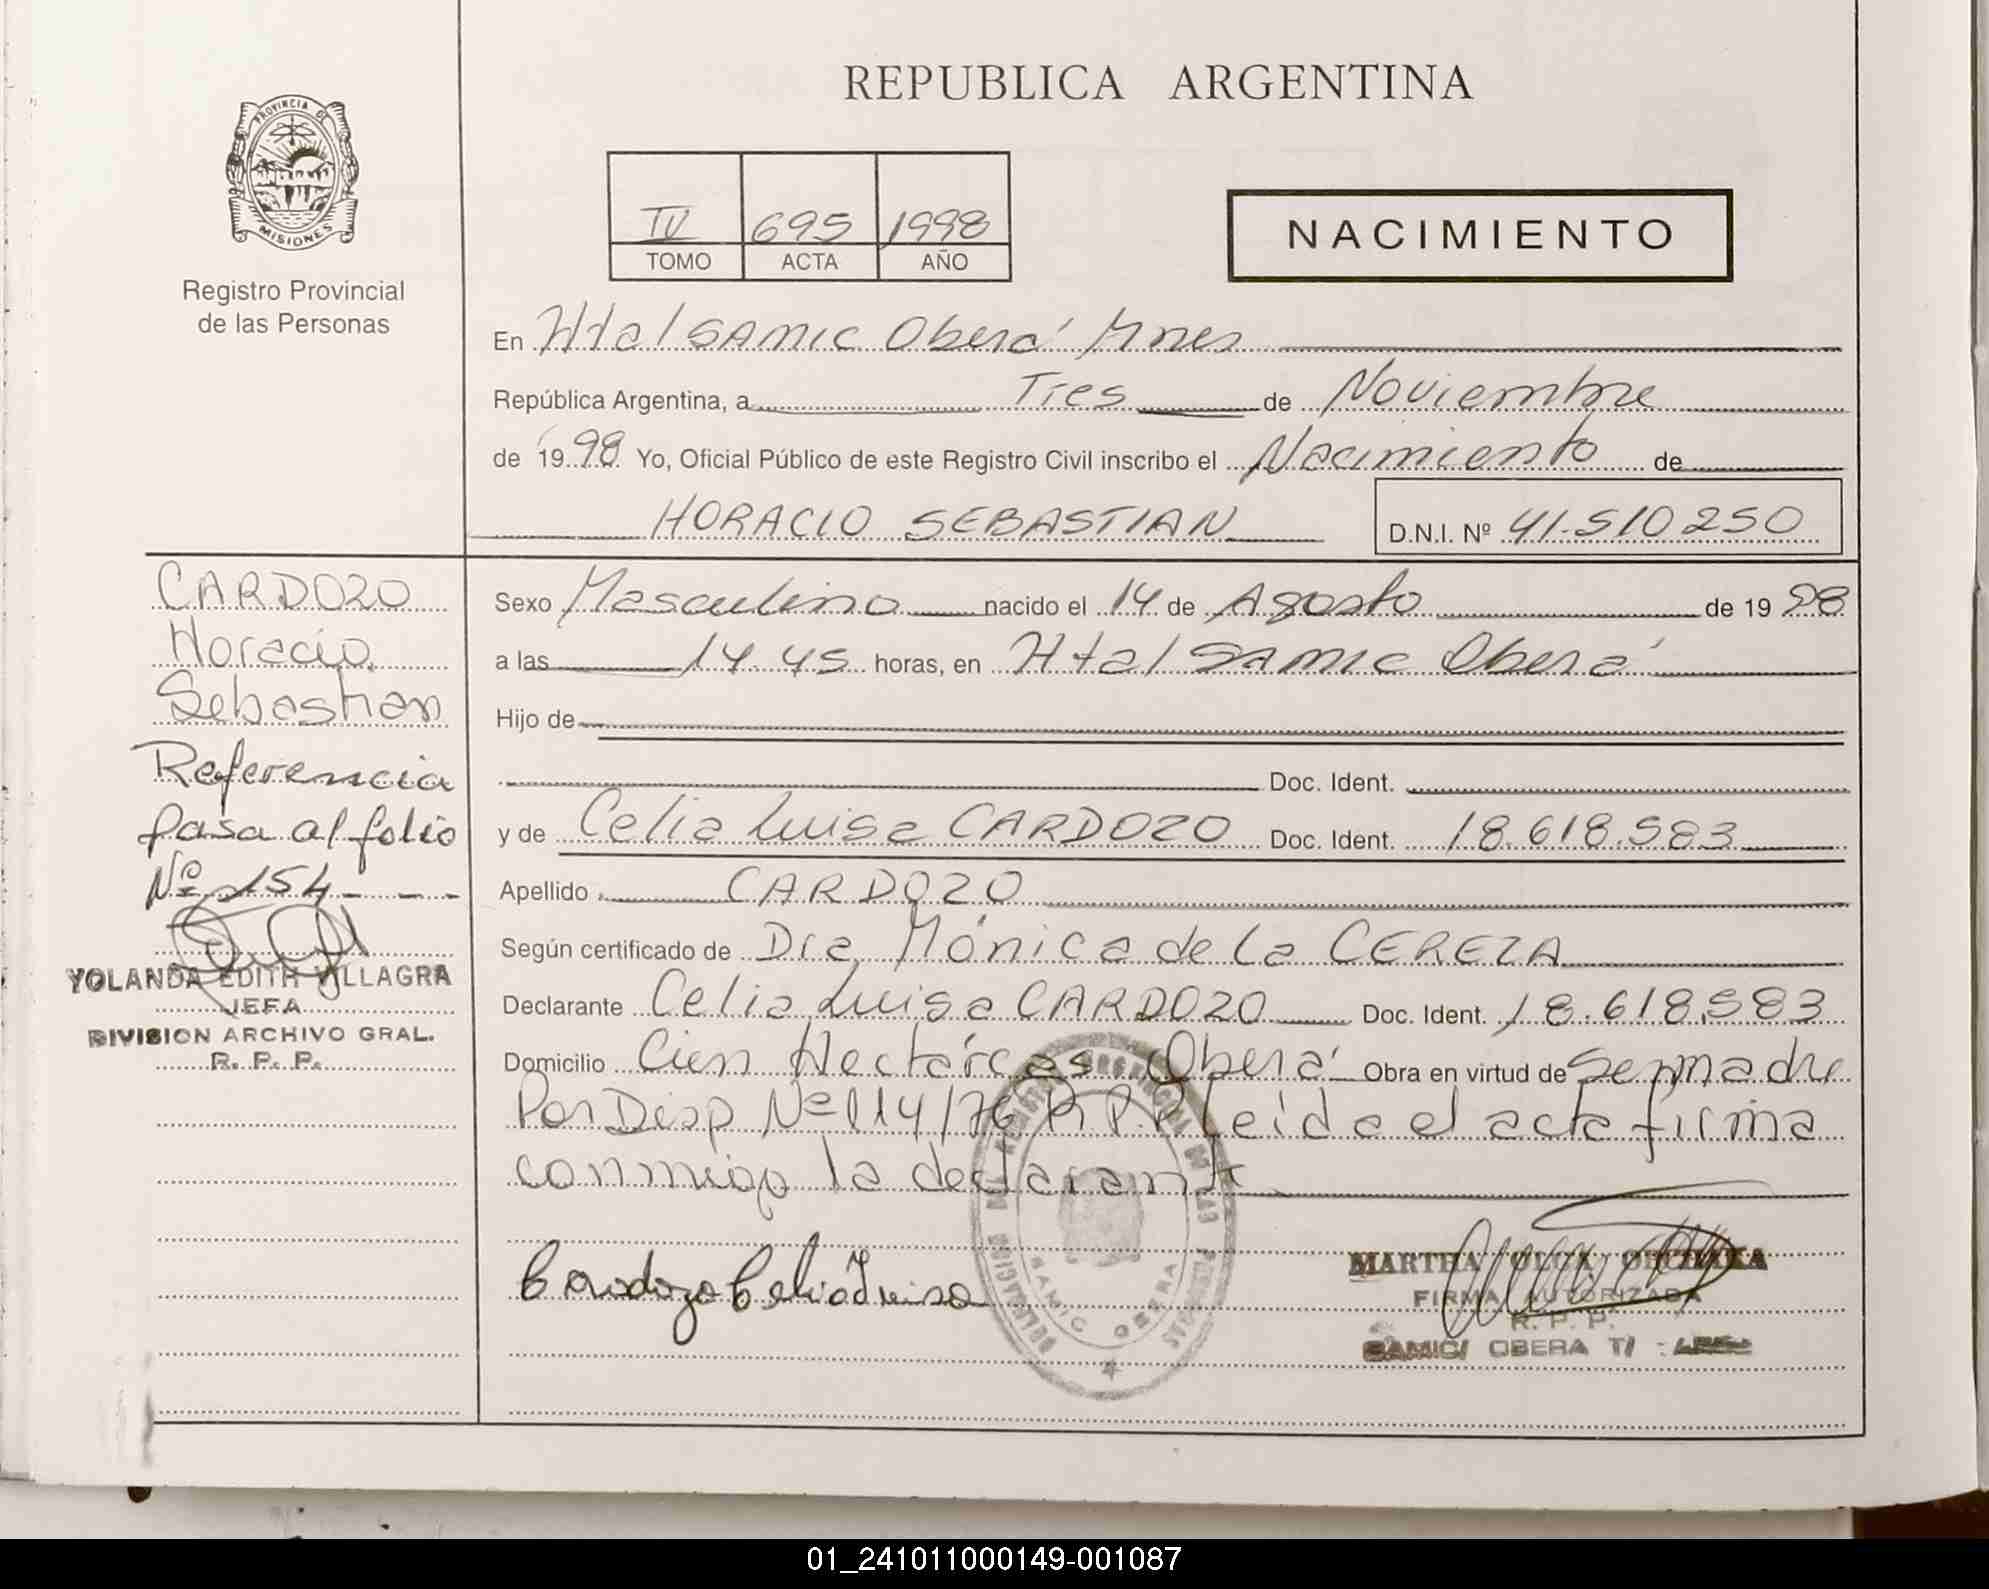 REPUBLICA ARGENTINA
PROVINCIA DE
MISIONES
Registro Provincial
de las Personas
IV 695 1998
TOMO ACTA AÑO
NACIMIENTO
En Htal SAMIC Oberá Mnes
República Argentina, a Tres de Noviembre
de 1998 Yo, Oficial Público de este Registro Civil inscribo el Nacimiento de
HORACIO SEBASTIAN D.N.I. Nº 41.510250
CARDOZO
Horacio
Sebastian
Referencia
pasa al folio
Nº 154 - - -
YOLANDA EDITH VILLAGRA
JEFA
DIVISION ARCHIVO GRAL.
R. P. P.
Sexo Masculino nacido el 14 de Agosto de 1998
a las 14.45 horas, en Htal SAMIC Oberá
Hijo de
Doc. Ident.
y de Celia Luisa CARDOZO Doc. Ident. 18.618.583
Apellido CARDOZO
Según certificado de Dra Mónica de la CEREZA
Declarante Celia Luisa CARDOZO Doc. Ident. 18.618.583
Domicilio Cien Hectáreas Oberá Obra en virtud de Ser madre
Por Disp Nº 114/76 R.P.P. Leida el acta firma
conmigo la declarante
Cardozo Celia Luisa
MARTHA OLGA
FIRMA AUTORIZADA
R. P. P.
SAMIC/ OBERA
SAMIC OBERA
01_241011000149-001087